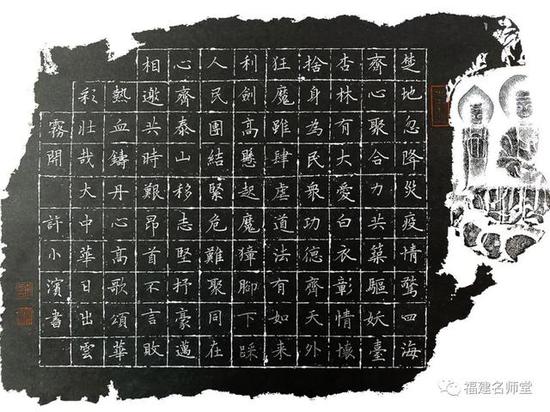 楚地忽降災疫情驚四海
齊心聚合力共築驅妖臺
杏林有大愛白衣彰情懷
捨身為民眾功德齊天外
狂魔雖肆虐道法有如來
利劍高懸起魔獐腳下踩
人民團結緊危難聚同在
心齊泰山移志堅抒豪邁
相邀共時艱昂首不言敗
熱血鑄丹心高歌頌華
彩壯哉大中華日出雲
霧開 許小濱書
福建名师堂